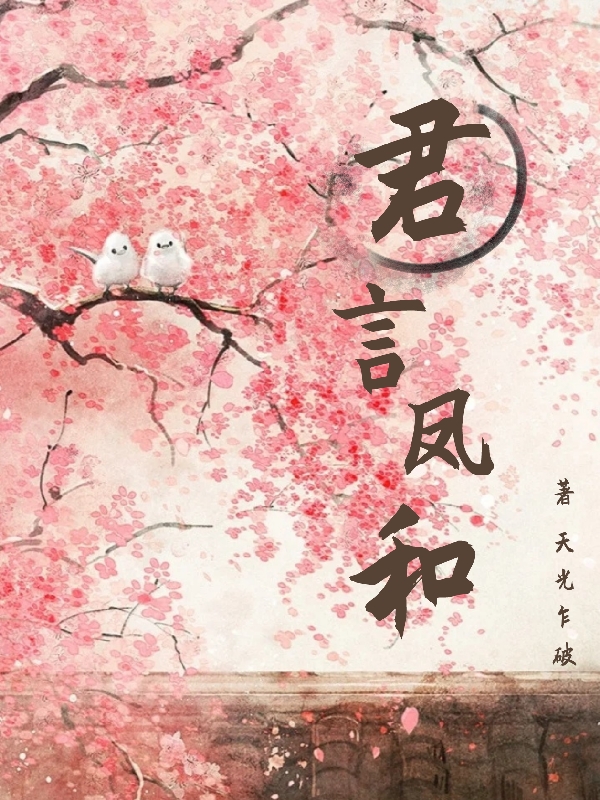 君言凤和
著 天光乍破